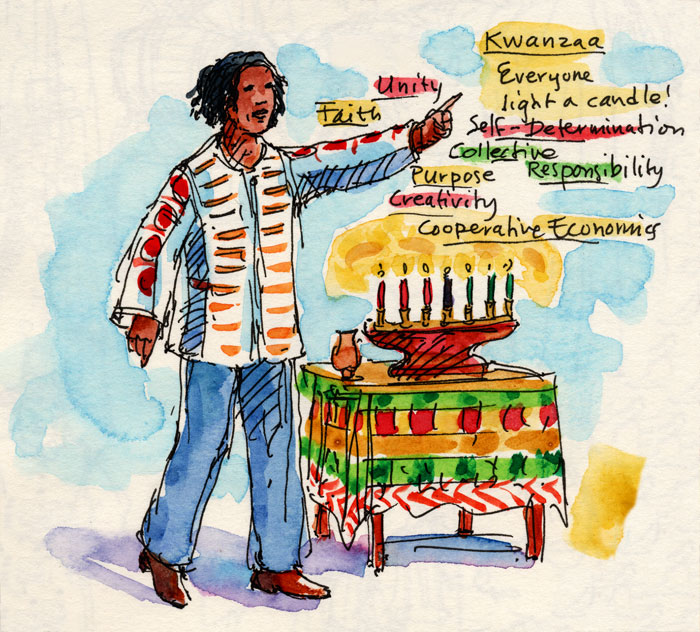 Kwanzaa
Everyone
light a candle!
Unity
Faith
Self-Determination
Collective
Responsibility
Purpose
Creativity
Cooperative Economics